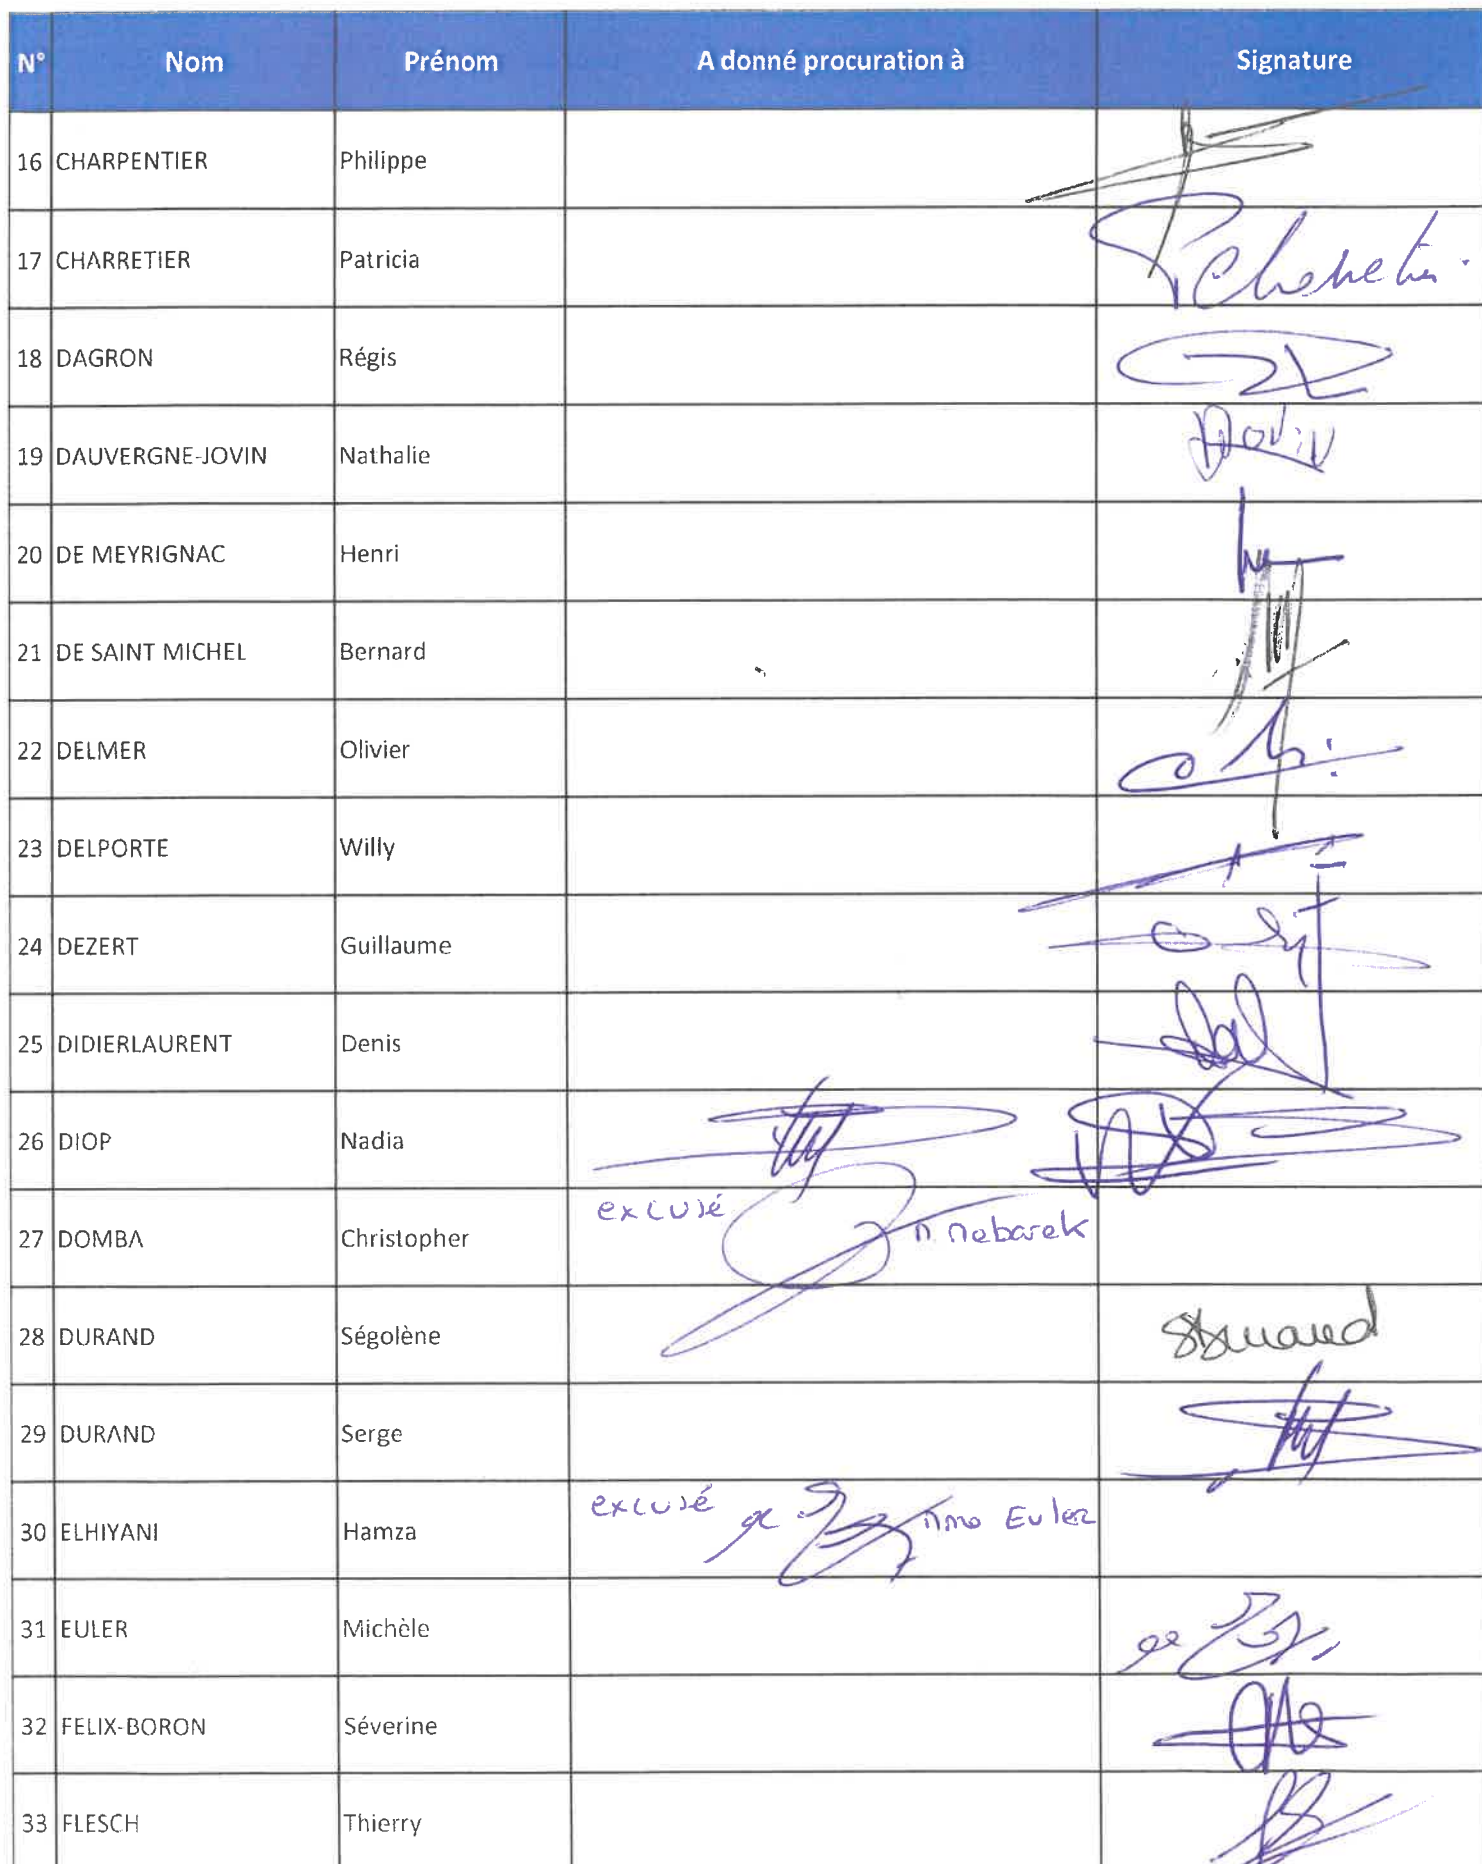 N° Nom Prénom A donné procuration à Signature
16 CHARPENTIER Philippe
17 CHARRETIER Patricia
18 DAGRON Régis
19 DAUVERGNE-JOVIN Nathalie
20 DE MEYRIGNAC Henri
21 DE SAINT MICHEL Bernard
22 DELMER Olivier
23 DELPORTE Willy
24 DEZERT Guillaume
25 DIDIERLAURENT Denis
26 DIOP Nadia
27 DOMBA Christopher excusé M Mebarek
28 DURAND Ségolène SDurand
29 DURAND Serge
30 ELHIYANI Hamza excusé Mme Euler
31 EULER Michèle
32 FELIX-BORON Séverine
33 FLESCH Thierry